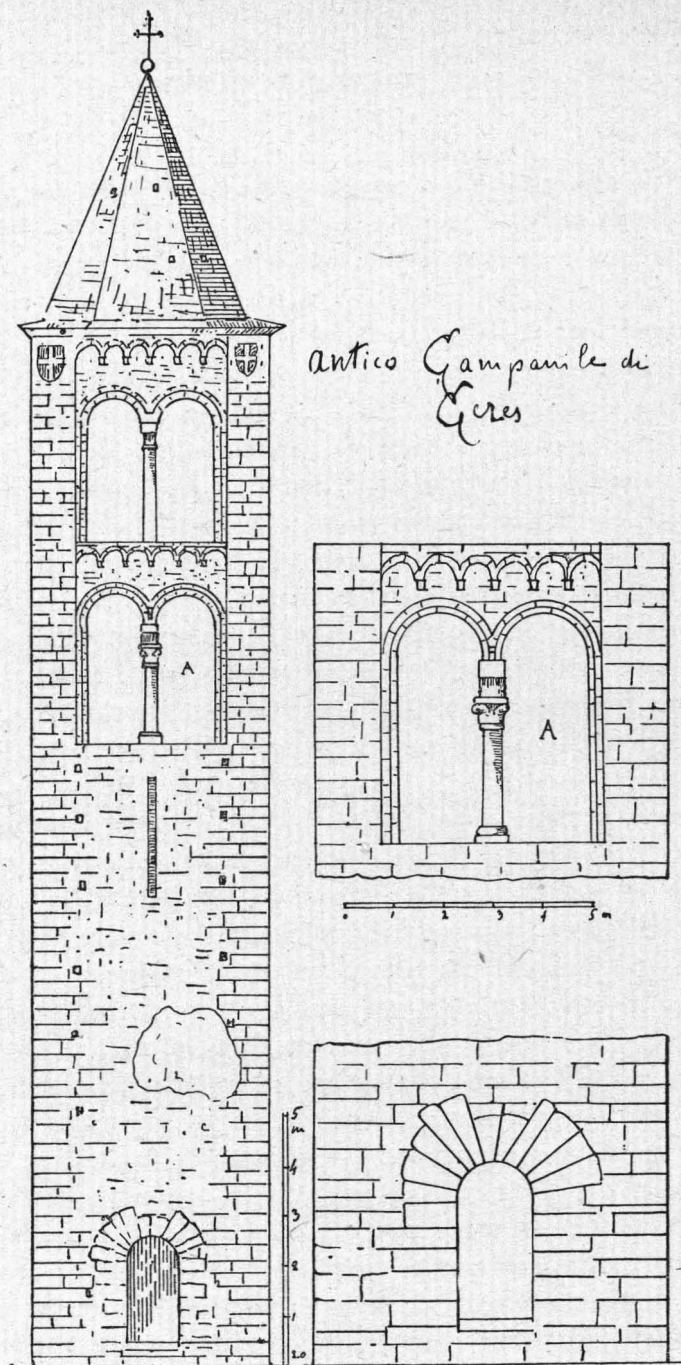 antico Campanile di
Ceres
A
A
0 1 2 3 4 5 m
5
m
4
3
2
1